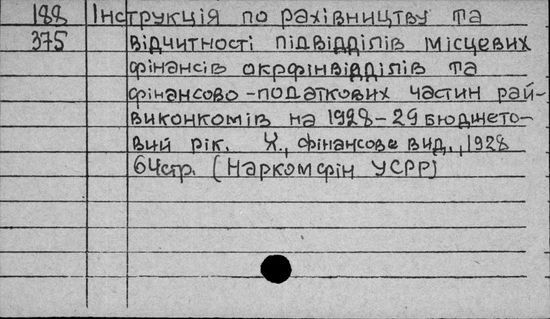 188 Інструкція по рахівництву та
375 відчитності підвідділів місцевих
фінансів окрфінвідділів та
фінансово-податкових частин рай-
виконкомів на 1928-29 бюджето-
вий рік. Х., фінансове вид., 1928
64стр. (Наркомфін УСРР)